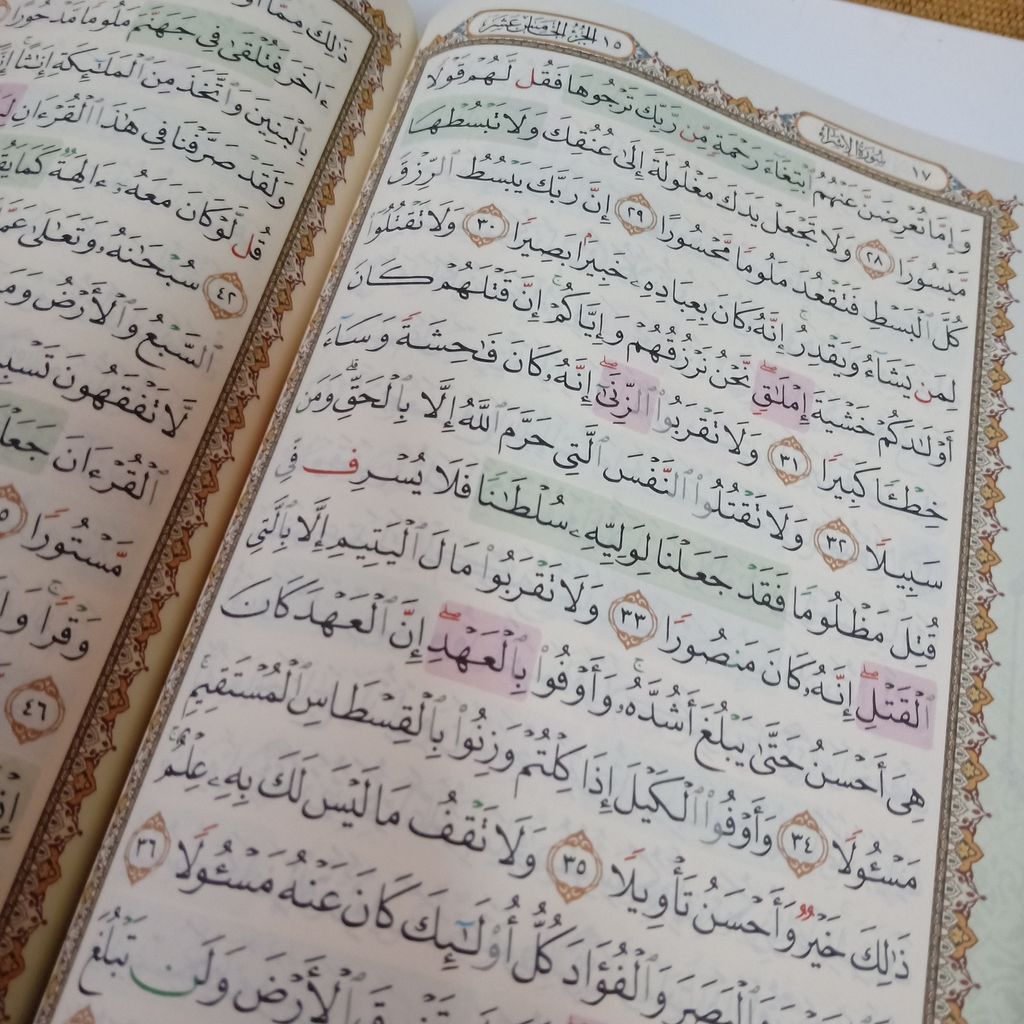 ١٧ سُورَةُ الإِسْرَاءِ
الجُزْءُ الخَامِسَ عَشَرَ ١٥
وَإِمَّا تُعْرِضَنَّ عَنْهُمُ ٱبْتِغَآءَ رَحْمَةٍ مِّن رَّبِّكَ تَرْجُوهَا فَقُل لَّهُمْ قَوْلًا
مَّيْسُورًا ٢٨ وَلَا تَجْعَلْ يَدَكَ مَغْلُولَةً إِلَىٰ عُنُقِكَ وَلَا تَبْسُطْهَا
كُلَّ ٱلْبَسْطِ فَتَقْعُدَ مَلُومًا مَّحْسُورًا ٢٩ إِنَّ رَبَّكَ يَبْسُطُ ٱلرِّزْقَ
لِمَن يَشَآءُ وَيَقْدِرُ ۚ إِنَّهُۥ كَانَ بِعِبَادِهِۦ خَبِيرًۢا بَصِيرًا ٣٠ وَلَا تَقْتُلُوٓا۟
أَوْلَٰدَكُمْ خَشْيَةَ إِمْلَٰقٍ ۖ نَّحْنُ نَرْزُقُهُمْ وَإِيَّاكُمْ ۚ إِنَّ قَتْلَهُمْ كَانَ
خِطْـًٔا كَبِيرًا ٣١ وَلَا تَقْرَبُوا۟ ٱلزِّنَىٰٓ ۖ إِنَّهُۥ كَانَ فَٰحِشَةً وَسَآءَ
سَبِيلًا ٣٢ وَلَا تَقْتُلُوا۟ ٱلنَّفْسَ ٱلَّتِى حَرَّمَ ٱللَّهُ إِلَّا بِٱلْحَقِّ ۗ وَمَن
قُتِلَ مَظْلُومًا فَقَدْ جَعَلْنَا لِوَلِيِّهِۦ سُلْطَٰنًا فَلَا يُسْرِف فِّى
ٱلْقَتْلِ ۖ إِنَّهُۥ كَانَ مَنصُورًا ٣٣ وَلَا تَقْرَبُوا۟ مَالَ ٱلْيَتِيمِ إِلَّا بِٱلَّتِى
هِىَ أَحْسَنُ حَتَّىٰ يَبْلُغَ أَشُدَّهُۥ ۚ وَأَوْفُوا۟ بِٱلْعَهْدِ ۖ إِنَّ ٱلْعَهْدَ كَانَ
مَسْـُٔولًا ٣٤ وَأَوْفُوا۟ ٱلْكَيْلَ إِذَا كِلْتُمْ وَزِنُوا۟ بِٱلْقِسْطَاسِ ٱلْمُسْتَقِيمِ ۚ
ذَٰلِكَ خَيْرٌ وَأَحْسَنُ تَأْوِيلًا ٣٥ وَلَا تَقْفُ مَا لَيْسَ لَكَ بِهِۦ عِلْمٌ ۚ
وَٱلْبَصَرَ وَٱلْفُؤَادَ كُلُّ أُو۟لَٰٓئِكَ كَانَ عَنْهُ مَسْـُٔولًا ٣٦
ٱلْأَرْضَ وَلَن تَبْلُغَ
ذَٰلِكَ مِمَّآ
ءَاخَرَ فَتُلْقَىٰ فِى جَهَنَّمَ مَلُومًا مَّدْحُورًا
بِٱلْبَنِينَ وَٱتَّخَذَ مِنَ ٱلْمَلَٰٓئِكَةِ إِنَٰثًا
وَلَقَدْ صَرَّفْنَا فِى هَٰذَا ٱلْقُرْءَانِ
قُل لَّوْ كَانَ مَعَهُۥٓ ءَالِهَةٌ كَمَا
٤٢ سُبْحَٰنَهُۥ وَتَعَٰلَىٰ
ٱلسَّبْعُ وَٱلْأَرْضُ
لَّا تَفْقَهُونَ
ٱلْقُرْءَانَ جَعَلْنَا
مَّسْتُورًا
وَقْرًا
٤٦